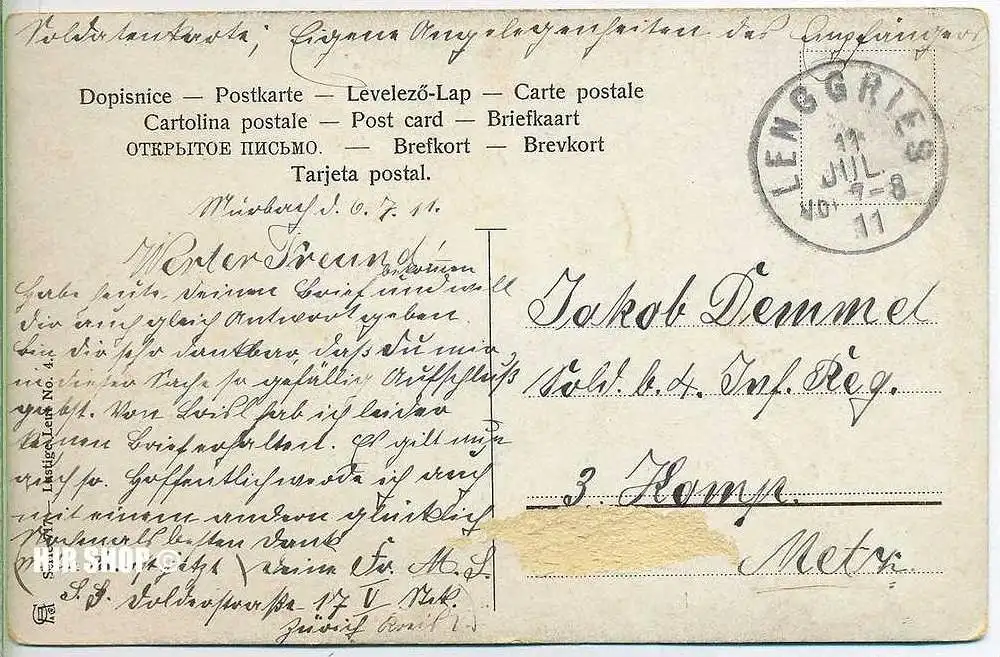 Soldatenkarte, Eigene Angelegenheiten des Empfängers
Dopisnice — Postkarte — Levelező-Lap — Carte postale
Cartolina postale — Post card — Briefkaart
ОТКРЫТОЕ ПИСЬМО. — Brefkort — Brevkort
Tarjeta postal.
LENGGRIES
11
JUL.
7-8
11
Murbach d. 6. 7. 11.
Werter Freund!
bekommen
Habe heute Deinen Brief und will
dir auch gleich Antwort geben.
bin dir sehr dankbar daß Du mir
in dieser Sache so gefällig Aufschluß
gabst. Von hab ich leider
keinen Brief erhalten. Es gilt nun
auch so. Hoffentlich werde ich auch
mit einem andern glücklich
Nochmals besten Dank
deine Fr. M. S.
Dolderstraße 17 V Stk.
Zürich Kreis
Jakob Demmel
Sold. b. 4. Inf. Reg.
3. Komp.
Metz.
Lustige Leut No. 4.
HJR SHOP ©